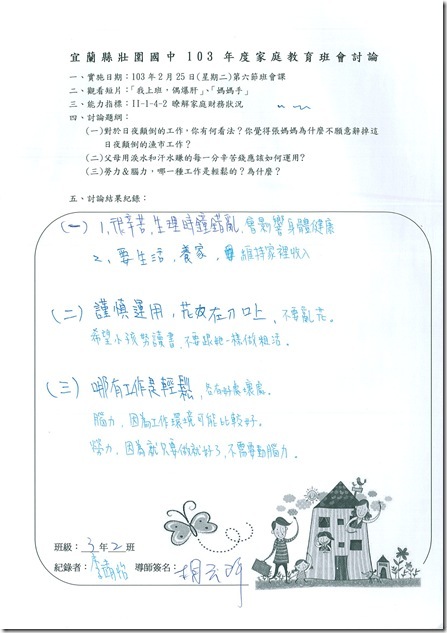 宜蘭縣壯圍國中 103 年度家庭教育班會討論
一、實施日期：103 年 2 月 25 日(星期二)第六節班會課
二、觀看短片：「我上班，偶爆肝」、「媽媽手」
三、能力指標：II-1-4-2 瞭解家庭財務狀況
四、討論題綱：
(一)對於日夜顛倒的工作，你有何看法？你覺得張媽媽為什麼不願意辭掉這
日夜顛倒的漁市工作？
(二)父母用淚水和汗水賺的每一分辛苦錢應該如何運用？
(三)勞力&腦力，哪一種工作是輕鬆的？為什麼？
五、討論結果紀錄：
(一) 1、很辛苦，生理時鐘錯亂，會影響身體健康
2、要生活，養家，維持家裡收入
(二) 謹慎運用，花放在刀口上，不要亂花。
希望小孩努讀書，不要跟她一樣做粗活。
(三) 哪有工作是輕鬆，各有好處壞處。
腦力，因為工作環境可能比較好。
勞力，因為就只要做就好了，不需要動腦力。
班級：3 年 2 班
紀錄者：李 導師簽名：胡